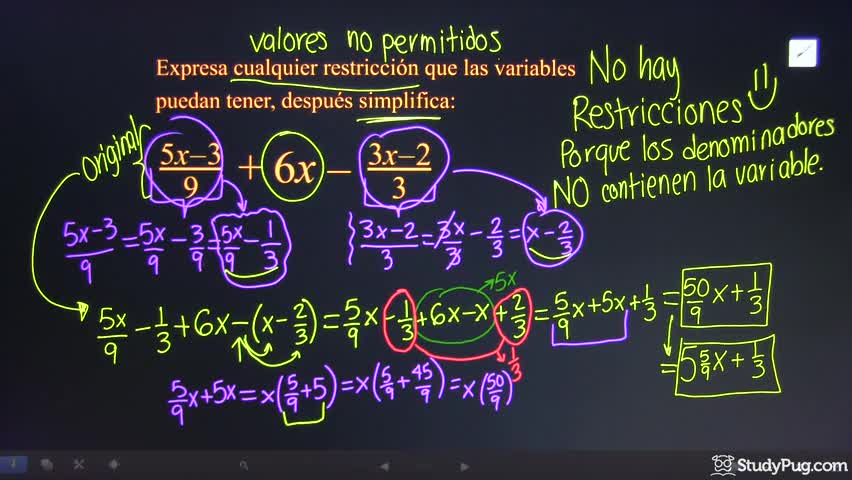 valores no permitidos
Expresa cualquier restricción que las variables
puedan tener, después simplifica:
No hay
Restricciones
Porque los denominadores
NO contienen la variable.
Original
(5x–3)/9 + 6x – (3x–2)/3
(5x-3)/9 = 5x/9 - 3/9 = 5x/9 - 1/3
(3x-2)/3 = 3x/3 - 2/3 = x - 2/3
5x
5x/9 - 1/3 + 6x - (x - 2/3) = 5/9 x - 1/3 + 6x - x + 2/3 = 5/9 x + 5x + 1/3 = 50/9 x + 1/3
1/3
= 5 5/9 x + 1/3
5/9 x + 5x = x(5/9 + 5) = x(5/9 + 45/9) = x(50/9)
StudyPug.com